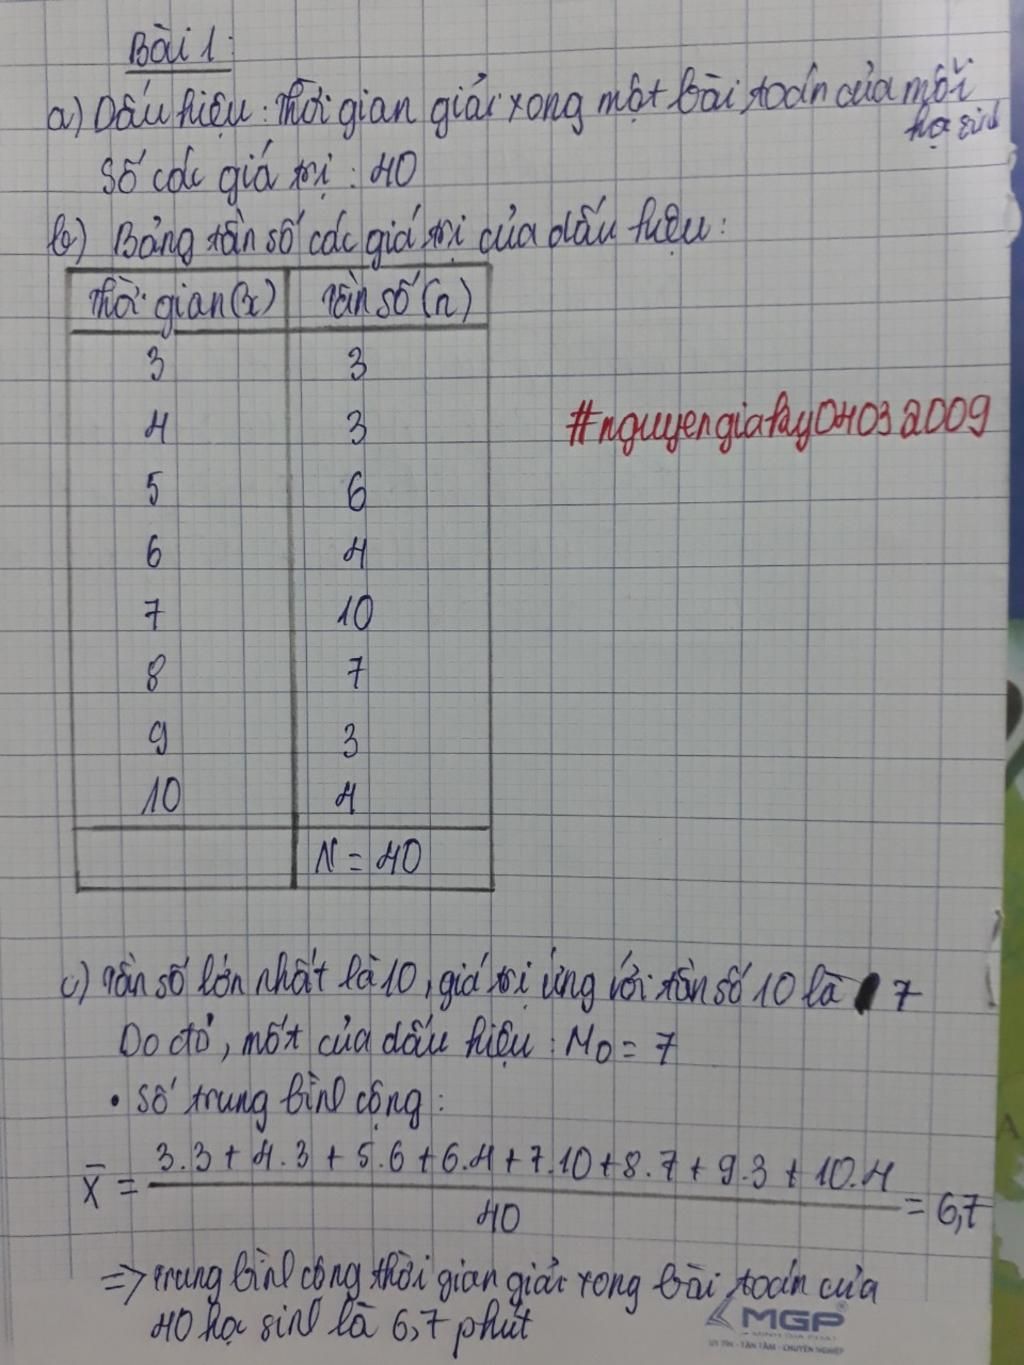 Bài 1:
a) Dấu hiệu: Thời gian giải xong một bài toán của mỗi
học sinh
Số các giá trị: 40
b) Bảng tần số các giá trị của dấu hiệu:
Thời gian(x) Tần số (n)
3 3
4 3
5 6
6 4
7 10
8 7
9 3
10 4
N = 40
#nguyengiahuy04032009
c) Tần số lớn nhất là 10, giá trị ứng với tần số 10 là 7
Do đó, mốt của dấu hiệu: M0 = 7
• Số trung bình cộng:
X̄ = (3.3 + 4.3 + 5.6 + 6.4 + 7.10 + 8.7 + 9.3 + 10.4) / 40 = 6,7
=> Trung bình cộng thời gian giải xong bài toán của
40 học sinh là 6,7 phút
MGP
UY TÍN - TẬN TÂM - CHUYÊN NGHIỆP